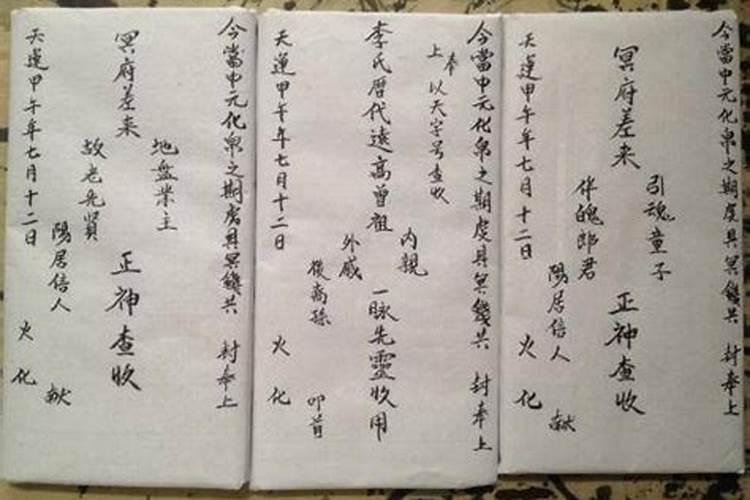 今當中元化帛之期虔具冥錢共 封奉上
引魂童子
冥府差来 正神查收
伴魄郎君
陽居信人 献
天運甲午年七月十二日 火化
今當中元化帛之期虔具冥錢共 封奉上
奉上 以天字号查收
內親
李氏歷代遠高曾祖 一脉先靈收用
外戚
後裔孫 叩首
天運甲午年七月十二日 火化
今當中元化帛之期虔具冥錢共 封奉上
地盤業主
冥府差来 正神查收
故老先賢
陽居信人 献
天運甲午年七月十二日 火化